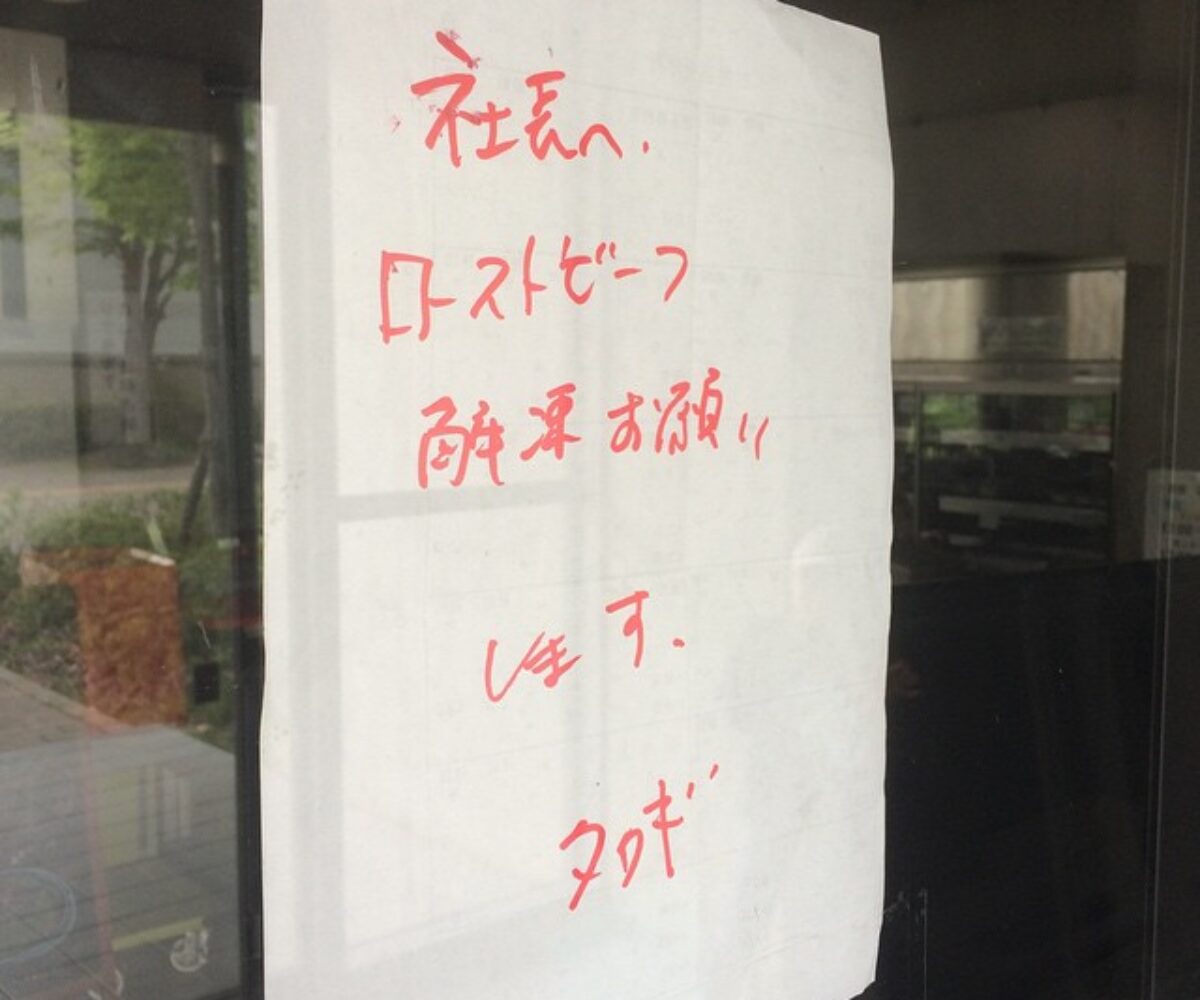 社長へ.
ロースト ビーフ
解凍お願い
します.
タカギ